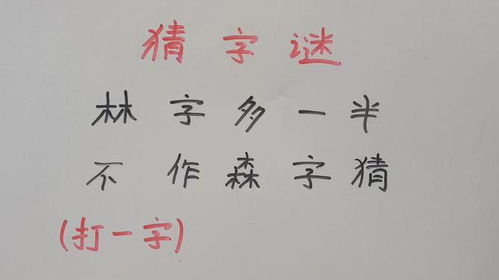 猜字谜
林字多一半
不作森字猜
(打一字)